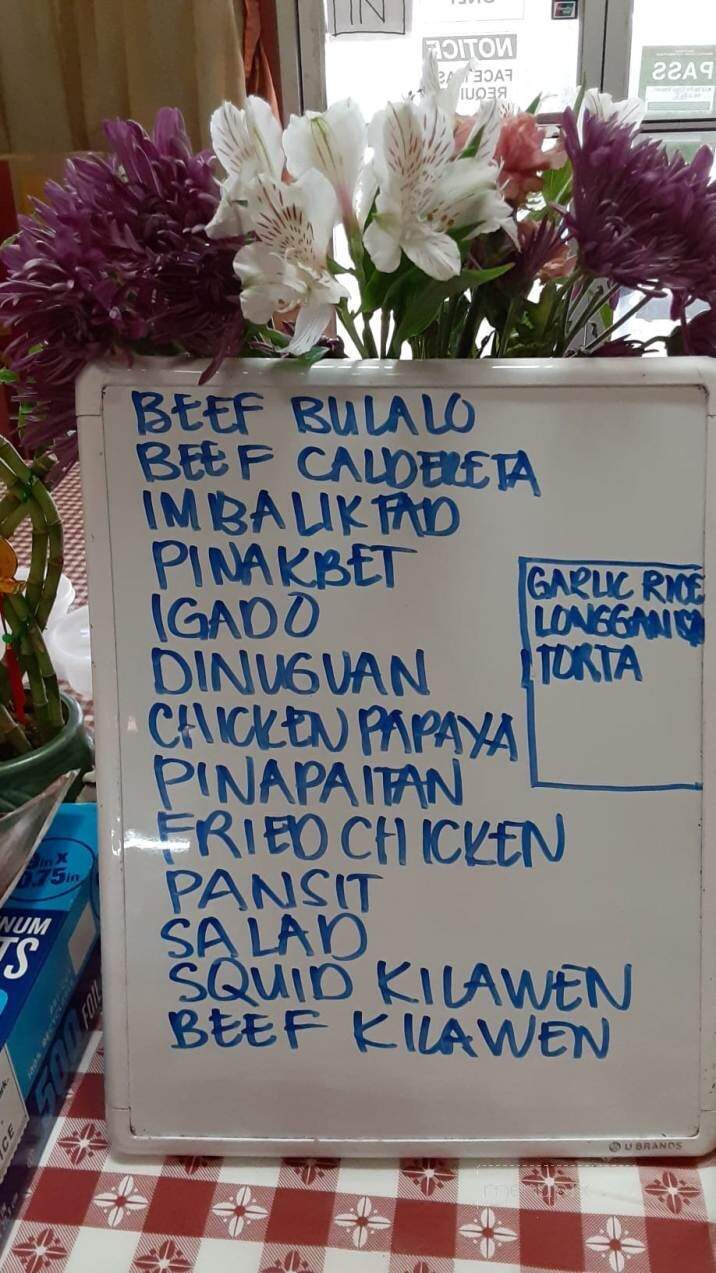 IN
NOTICE
PASS
BEEF BULALO
BEEF CALDERETA
IMBALIKTAD
PINAKBET
IGADO
DINUGUAN
CHICKEN PAPAYA
PINAPAITAN
FRIED CHICKEN
PANSIT
SALAD
SQUID KILAWEN
BEEF KILAWEN
GARLIC RICE
LONGGANISA
TORTA
U BRANDS
0.75in
NUM
TS
500 FOIL
ICE